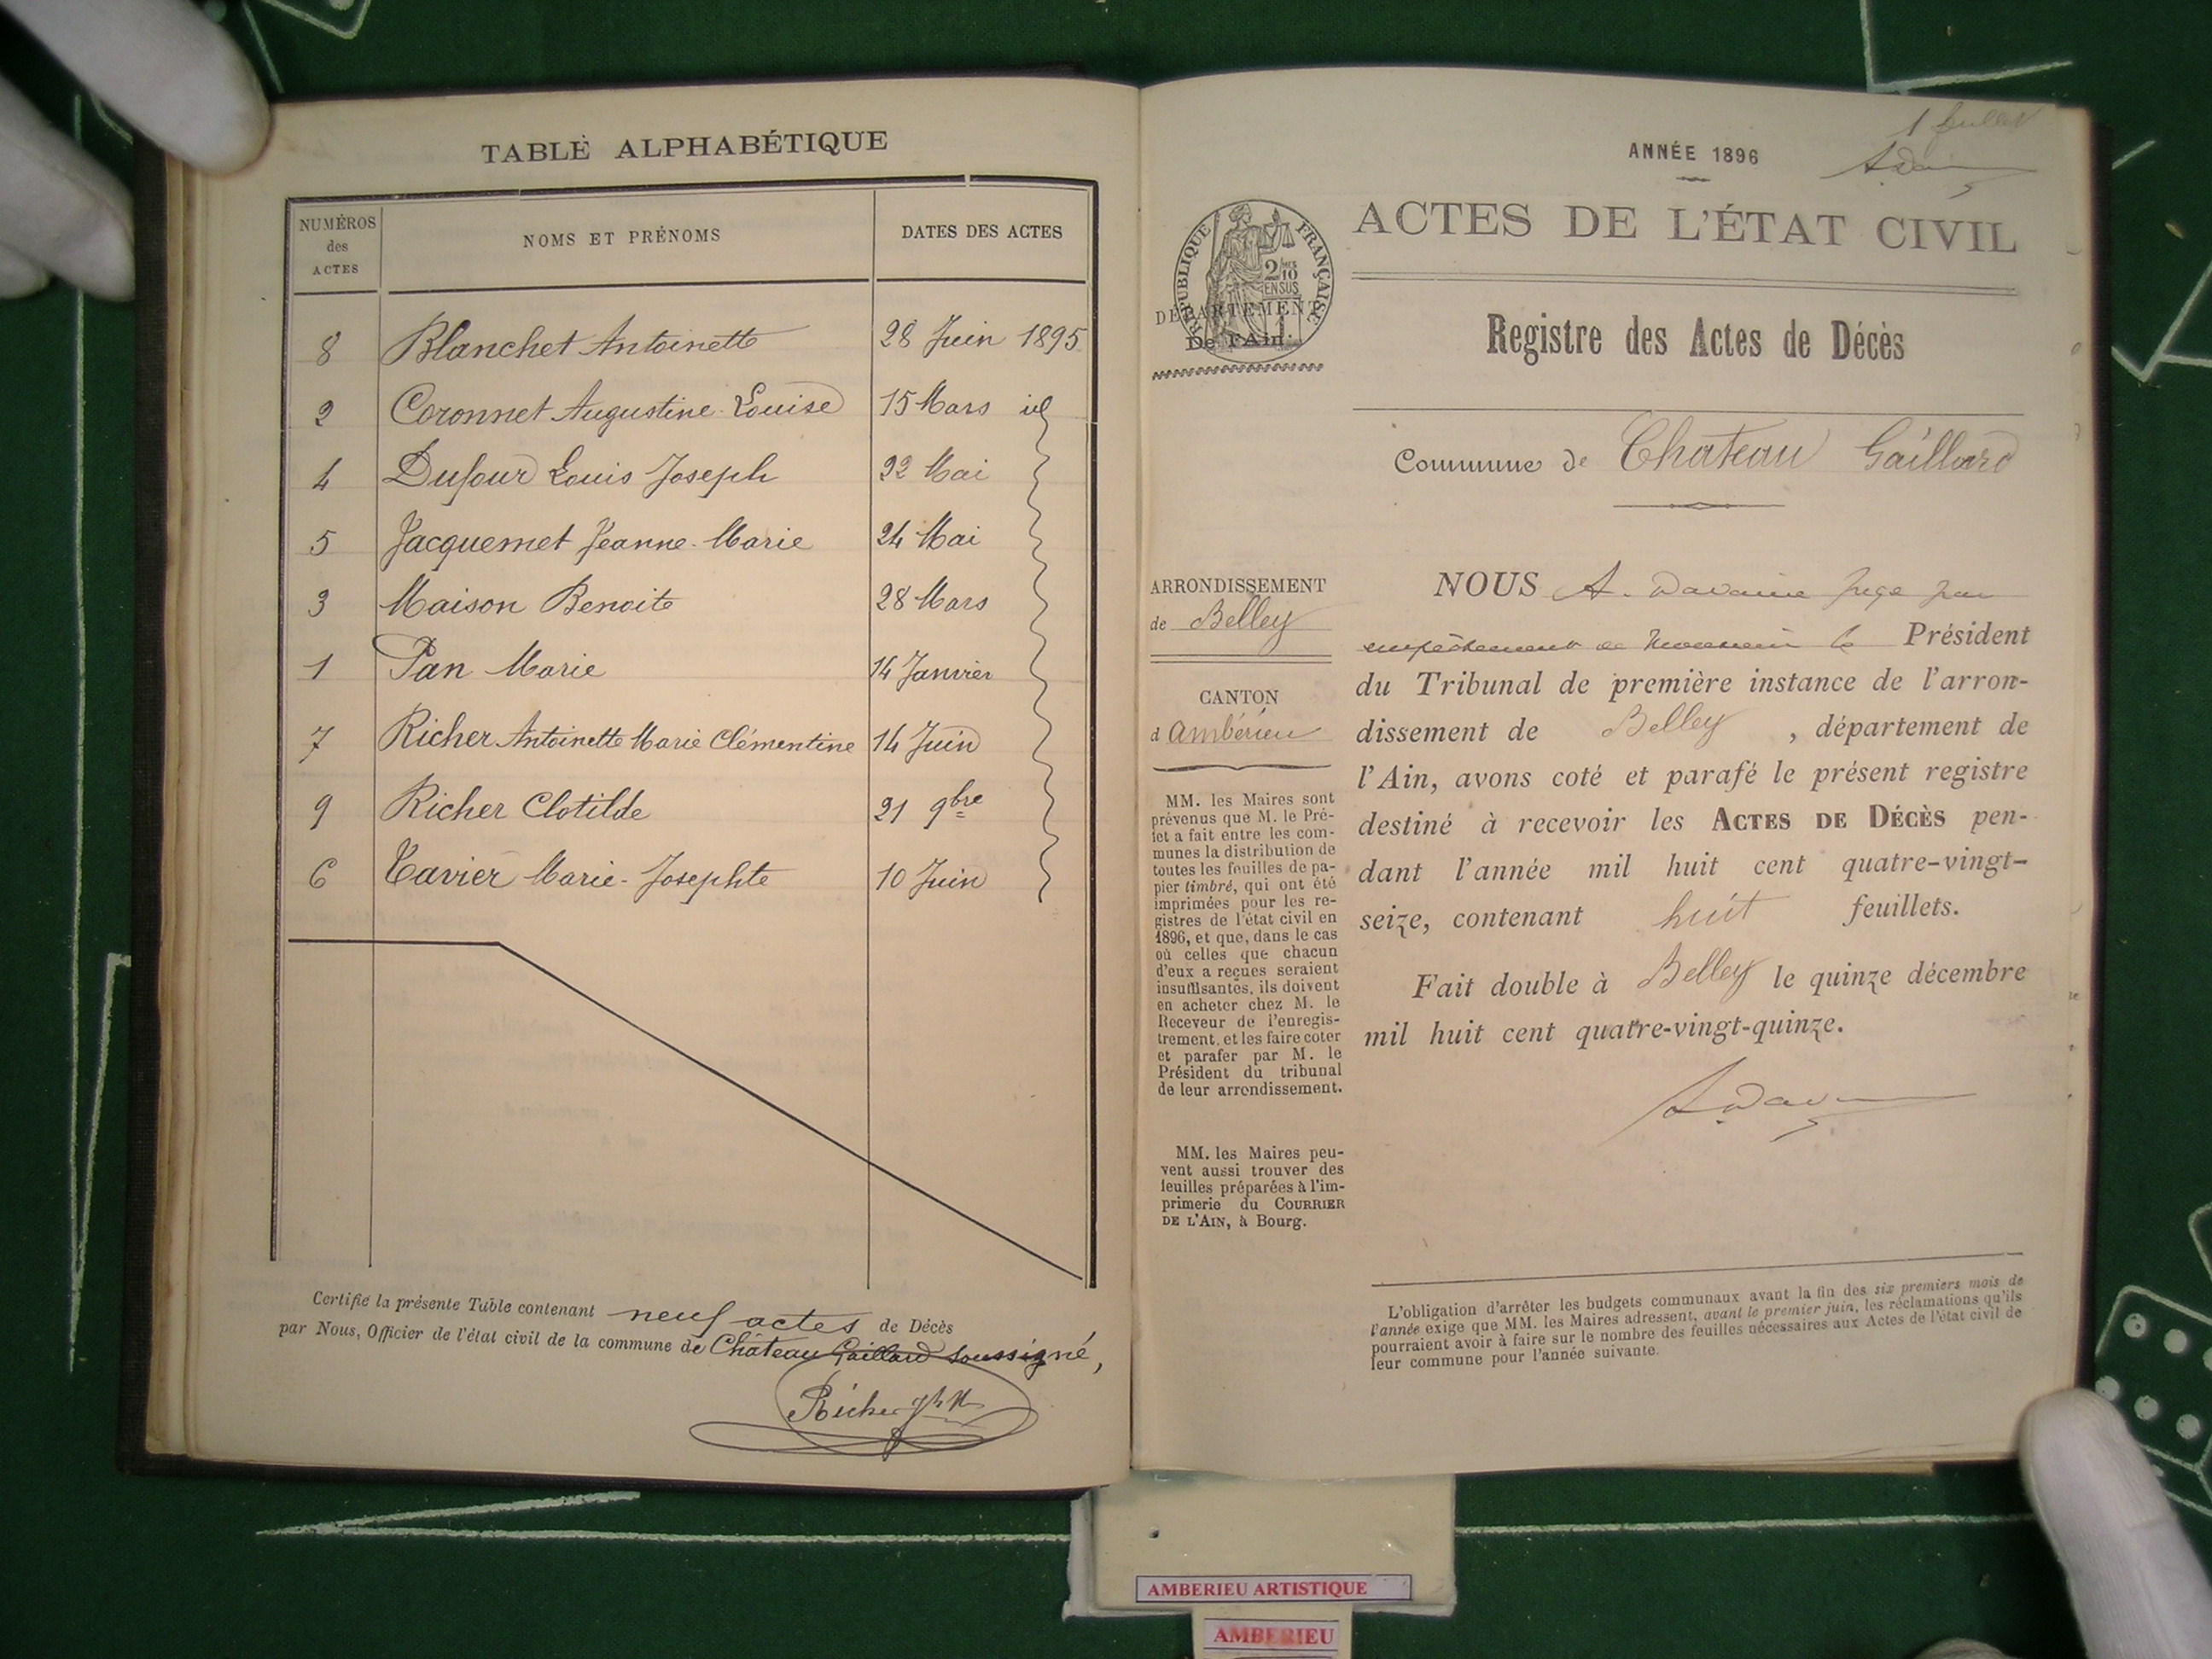 TABLE ALPHABÉTIQUE
NUMÉROS
des
ACTES
NOMS ET PRÉNOMS
DATES DES ACTES
8 Blanchet Antoinette 28 Juin 1895
2 Coronnet Augustine Louise 15 Mars id
4 Dufour Louis Joseph 22 Mai
5 Jacquemet Jeanne-Marie 24 Mai
3 Maison Benoite 28 Mars
1 Pan Marie 14 Janvier
7 Richer Antoinette Marie Clémentine 14 Juin
9 Richer Clotilde 21 9bre
6 Tavier Marie-Josephte 10 Juin
Certifié la présente Table contenant neuf actes de Décès
par Nous, Officier de l'état civil de la commune de Château Gaillard soussigné,
Richer
ANNÉE 1896
ACTES DE L'ÉTAT CIVIL
RÉPUBLIQUE FRANÇAISE
2 10
EN SUS
DÉPARTEMENT
De l'Ain.
Registre des Actes de Décès
Commune de Chateau Gaillard
ARRONDISSEMENT
de Belley
CANTON
d'Ambérieu
MM. les Maires sont
prévenus que M. le Pré-
fet a fait entre les com-
munes la distribution de
toutes les feuilles de pa-
pier timbré, qui ont été
imprimées pour les re-
gistres de l'état civil en
1896, et que, dans le cas
où celles que chacun
d'eux a reçues seraient
insuffisantes, ils doivent
en acheter chez M. le
Receveur de l'enregis-
trement, et les faire coter
et parafer par M. le
Président du tribunal
de leur arrondissement.
MM. les Maires peu-
vent aussi trouver des
feuilles préparées à l'im-
primerie du COURRIER
DE L'AIN, à Bourg.
NOUS A. Davaine Juge par
empêchement de Monsieur le Président
du Tribunal de première instance de l'arron-
dissement de Belley, département de
l'Ain, avons coté et parafé le présent registre
destiné à recevoir les ACTES DE DÉCÈS pen-
dant l'année mil huit cent quatre-vingt-
seize, contenant huit feuillets.
Fait double à Belley le quinze décembre
mil huit cent quatre-vingt-quinze.
L'obligation d'arrêter les budgets communaux avant la fin des six premiers mois de
l'année exige que MM. les Maires adressent, avant le premier juin, les réclamations qu'ils
pourraient avoir à faire sur le nombre des feuilles nécessaires aux Actes de l'état civil de
leur commune pour l'année suivante.
AMBERIEU ARTISTIQUE
AMBERIEU